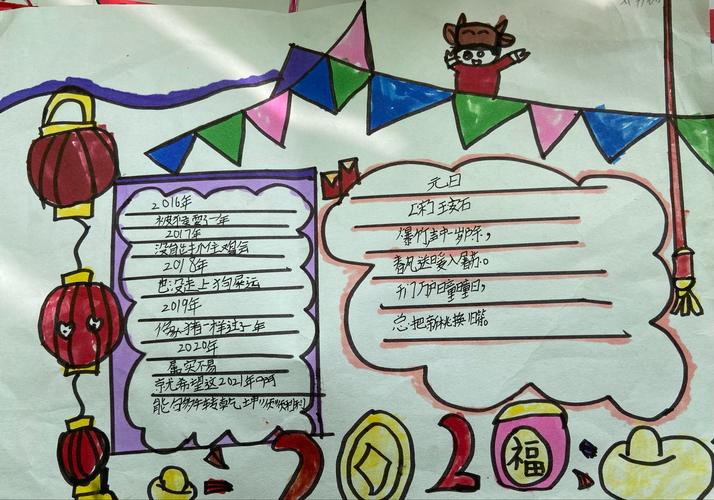 2016年
被猴耍了一年
2017年
没自出个生鸡会
2018年
也没走上狗屎运
2019年
像猪一样过了一年
2020年
属实不易
就希望这2021年啊
能牛转乾土
元日
[宋]王安石
爆竹声中一岁除,
春风送暖入屠苏。
千门万户曈曈日,
总把新桃换旧符。
2 2
福